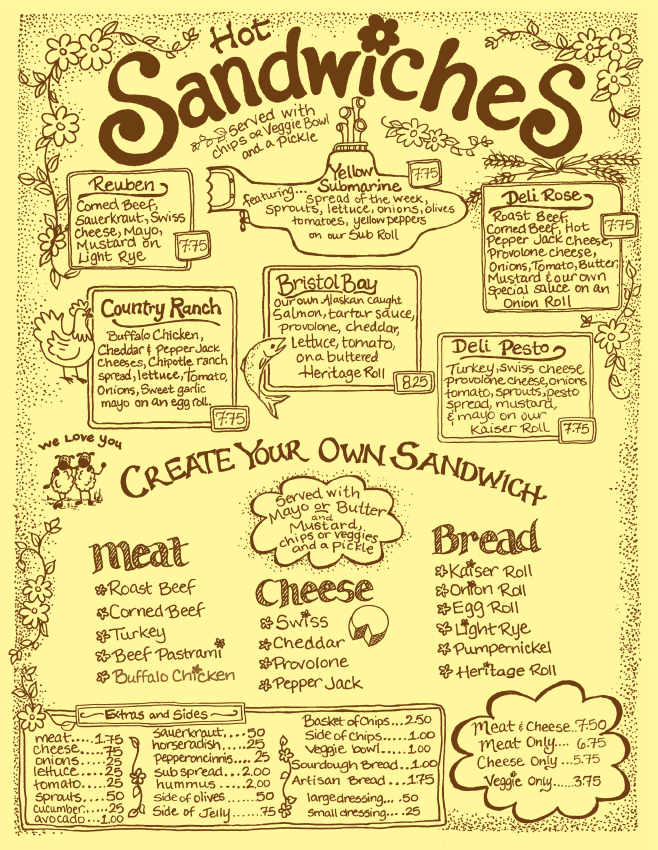 Hot
Sandwiches
served with
chips or Veggie Bowl
and a pickle
Reuben
Corned Beef,
Sauerkraut, Swiss
cheese, Mayo,
Mustard on
Light Rye
7.75
Yellow
Submarine
7.75
featuring...
spread of the week,
sprouts, lettuce, onions, olives
tomatoes, yellow peppers
on our Sub Roll
Deli Rose
Roast Beef,
Corned Beef, Hot
Pepper Jack cheese,
Provolone cheese,
Onions, Tomato, Butter,
Mustard & our own
special sauce on an
Onion Roll
7.75
Country Ranch
Buffalo Chicken,
Cheddar & Pepper Jack
cheeses, Chipotle ranch
spread, lettuce, Tomato,
Onions, Sweet garlic
mayo on an egg roll.
7.75
Bristol Bay
our own Alaskan caught
Salmon, tartar sauce,
provolone, cheddar,
lettuce, tomato,
on a buttered
Heritage Roll
8.25
Deli Pesto
Turkey, Swiss cheese
provolone cheese, onions
tomato, sprouts, pesto
spread, mustard,
& mayo on our
Kaiser Roll
7.75
We Love You
Create Your Own Sandwich
served with
Mayo or Butter
and
Mustard,
chips or veggies
and a pickle
Meat
Roast Beef
Corned Beef
Turkey
Beef Pastrami
Buffalo Chicken
Cheese
Swiss
Cheddar
Provolone
Pepper Jack
Bread
Kaiser Roll
Onion Roll
Egg Roll
Light Rye
Pumpernickel
Heritage Roll
Extras and Sides
meat.....1.75
cheese.....75
onions.....25
lettuce.....25
tomato.....25
sprouts.....50
cucumber.....25
avocado...1.00
sauerkraut....50
horseradish.....25
Pepperoncinis....25
sub spread...2.00
hummus.....2.00
side of olives.....50
Side of Jelly.....75
Basket of Chips...2.50
Side of chips.....1.00
Veggie bowl.....1.00
Sourdough Bread...1.00
Artisan Bread....1.75
large dressing....50
small dressing....25
Meat & Cheese..7.50
Meat Only.... 6.75
Cheese Only...5.75
Veggie Only....3.75